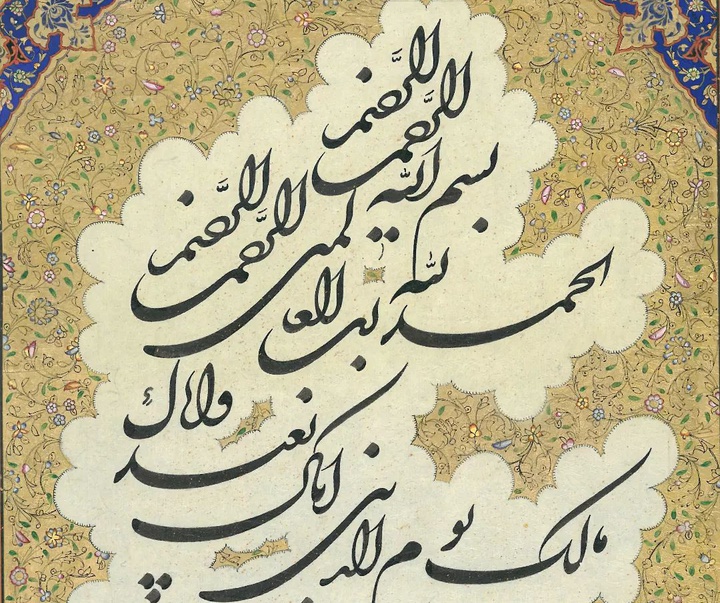 بسم الله الرَّحمن الرَّحیم
الحمد لله رب العالمین الرَّحمن الرَّحیم
مالک یوم الدین ایاک نعبد وایاک